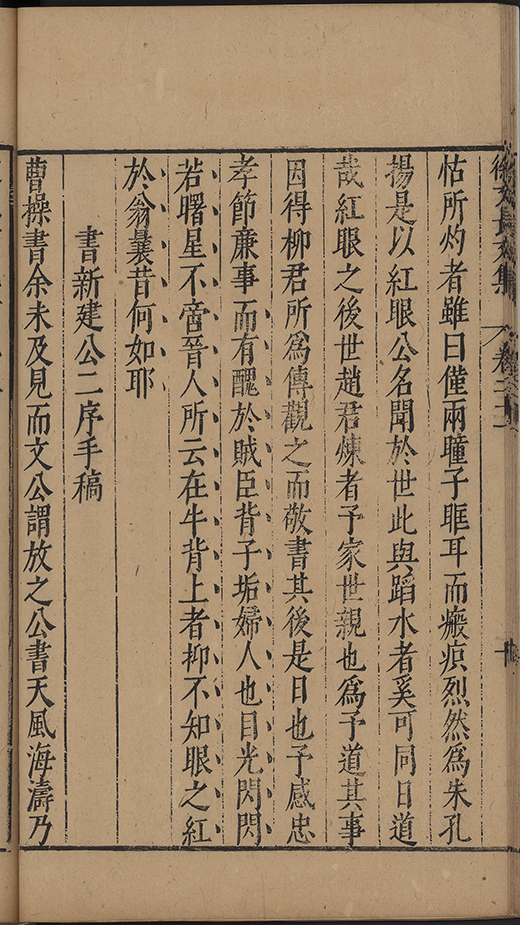 徐文長文集 卷二十一 十
怙所灼者雖曰僅兩瞳子眶耳而瘢痕烈然為朱孔
揚是以紅眼公名聞於世此與蹈水者奚可同日道
哉紅眼之後世趙君煉者予家世親也為予道其事
因得柳君所為傳觀之而敬書其後是日也予感忠
孝節廉事而有醜於賊臣背子垢婦人也目光閃閃
若曙星不啻晉人所云在牛背上者抑不知眼之紅
於翁曩昔何如耶
書新建公二序手稿
曹操書余未及見而文公謂放之公書天風海濤乃